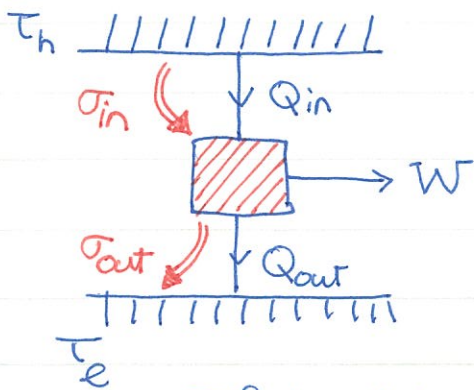 τh
σin Qin
W
σout Qout
τe